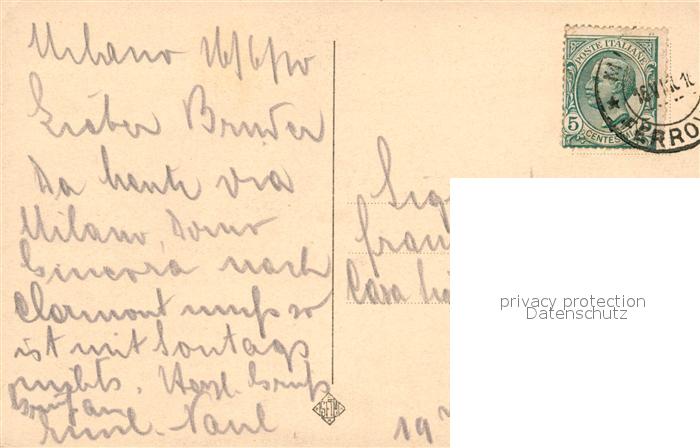 Milano 16/6/10
Lieber Bruder
Da heute via
Milano, Domo
nach
Clarmont muss so
ist mit Sontags
nichts. Herzl. Gruß
Gruß an
Emil.
Sig
fran
Casa
19
POSTE ITALIANE
5
CENTES
FERROV
privacy protection
Datenschutz